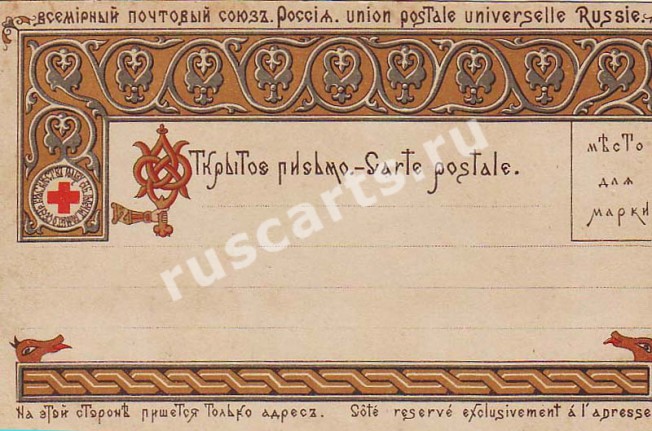 всемірный почтовый союзъ. Россія. union postale universelle Russie.
Открытое письмо.-Carte postale.
мѣсто
для
марки
ruscarts.ru
На этой сторонѣ пишется только адресъ. Sôté reservé exclusivement á l'adresse